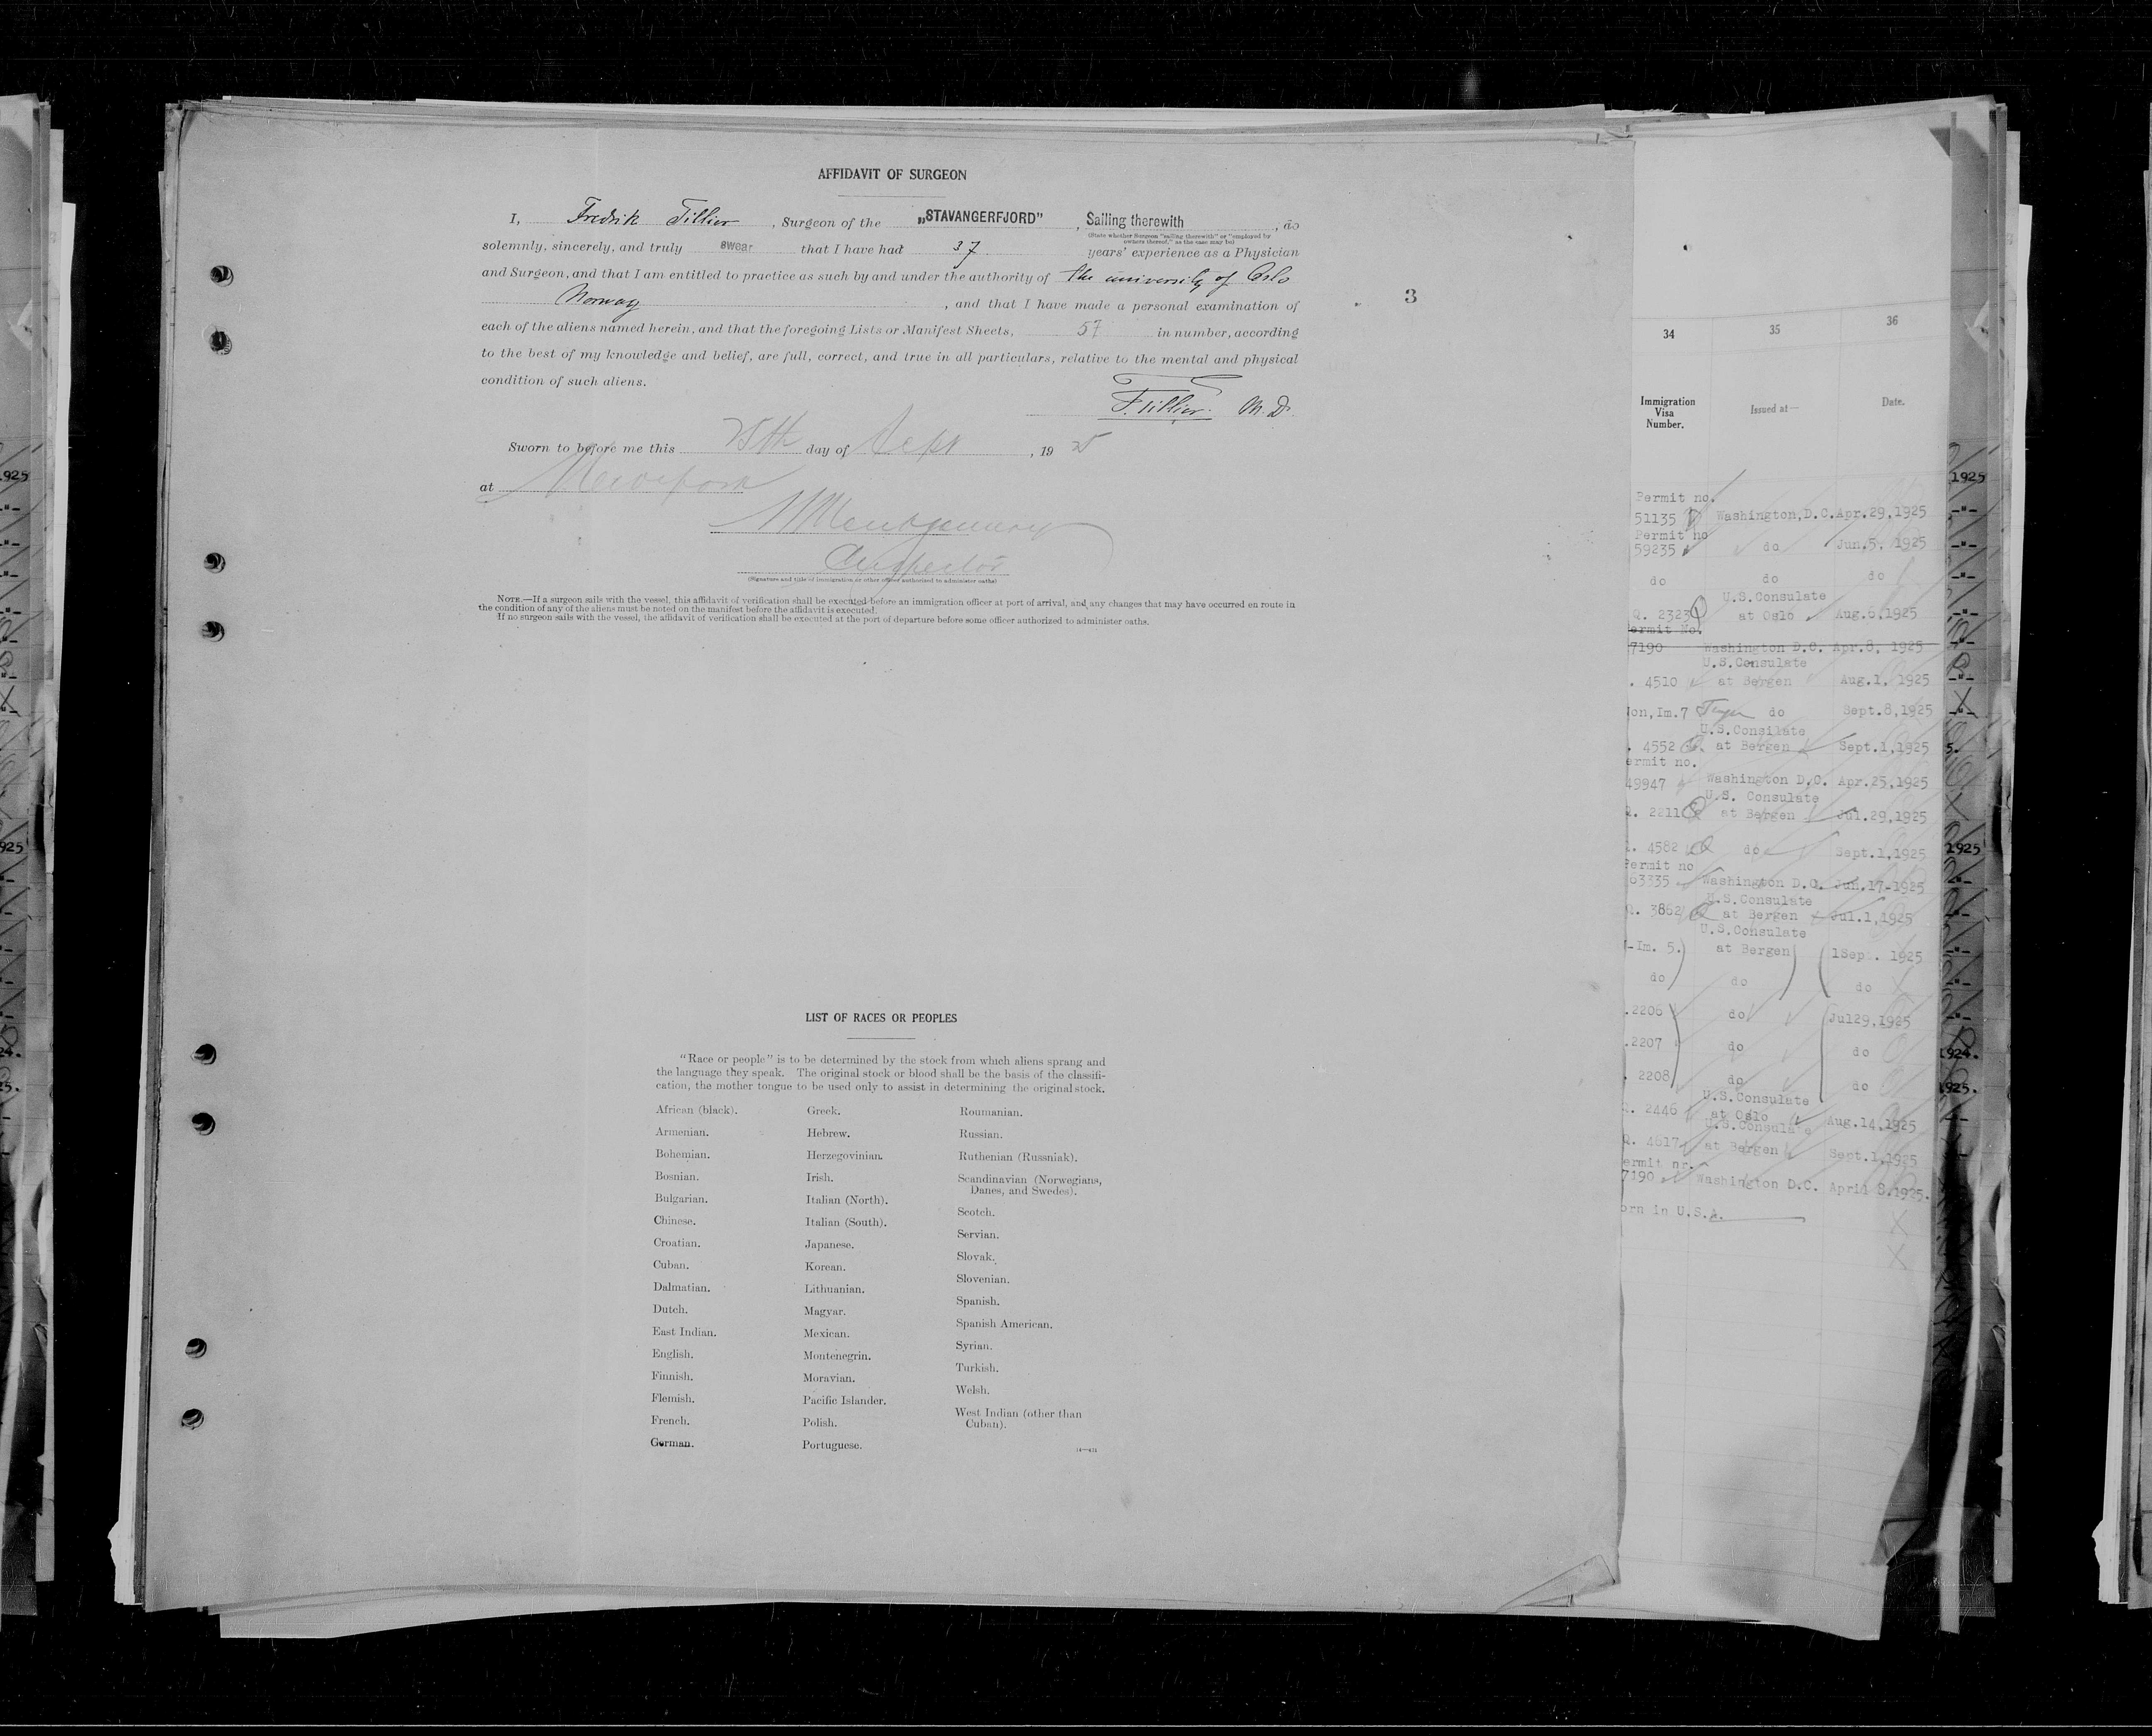 AFFIDAVIT OF SURGEON
I, Fredrik Tillier, Surgeon of the „STAVANGERFJORD”, Sailing therewith, do
(State whether Surgeon "sailing therewith" or "employed by
owners thereof," as the case may be)
solemnly, sincerely, and truly swear that I have had 37 years' experience as a Physician
and Surgeon, and that I am entitled to practice as such by and under the authority of the university of Oslo
Norway, and that I have made a personal examination of
each of the aliens named herein, and that the foregoing Lists or Manifest Sheets, 57 in number, according
to the best of my knowledge and belief, are full, correct, and true in all particulars, relative to the mental and physical
condition of such aliens.
F. Tillier. M.D.
Sworn to before me this 25th day of Sept, 1925
at New York
Inspector
(Signature and title of immigration or other officer authorized to administer oaths)
NOTE.—If a surgeon sails with the vessel, this affidavit of verification shall be executed before an immigration officer at port of arrival, and any changes that may have occurred en route in
the condition of any of the aliens must be noted on the manifest before the affidavit is executed.
If no surgeon sails with the vessel, the affidavit of verification shall be executed at the port of departure before some officer authorized to administer oaths.
3
LIST OF RACES OR PEOPLES
"Race or people" is to be determined by the stock from which aliens sprang and
the language they speak. The original stock or blood shall be the basis of the classifi-
cation, the mother tongue to be used only to assist in determining the original stock.
African (black).
Armenian.
Bohemian.
Bosnian.
Bulgarian.
Chinese.
Croatian.
Cuban.
Dalmatian.
Dutch.
East Indian.
English.
Finnish.
Flemish.
French.
German.
Greek.
Hebrew.
Herzegovinian.
Irish.
Italian (North).
Italian (South).
Japanese.
Korean.
Lithuanian.
Magyar.
Mexican.
Montenegrin.
Moravian.
Pacific Islander.
Polish.
Portuguese.
Roumanian.
Russian.
Ruthenian (Russniak).
Scandinavian (Norwegians,
Danes, and Swedes).
Scotch.
Servian.
Slovak.
Slovenian.
Spanish.
Spanish American.
Syrian.
Turkish.
Welsh.
West Indian (other than
Cuban).
34 35 36
Immigration
Visa
Number.
Issued at—
Date.
Permit no.
51135 Washington,D.C. Apr.29,1925
Permit no
59235 do Jun.5, 1925
do do do
U.S.Consulate
Q. 2323 at Oslo Aug.6.1925
ermit No.
7190 Washington D.C. Apr.8, 1925
U.S.Consulate
. 4510 at Bergen Aug.1, 1925
on,Im.7 do Sept.8,1925
U.S.Consilate
. 4552 at Bergen Sept.1,1925
ermit no.
49947 Washington D.C. Apr.25,1925
U.S. Consulate
. 2211 at Bergen Jul.29,1925
. 4582 do Sept.1,1925
Permit no
63335 Washington D.C. Jun.17-1925
U.S.Consulate
Q. 3862 at Bergen Jul.1,1925
U.S.Consulate
-Im. 5.) at Bergen 1Sep. 1925
do do do
.2206 do Jul29,1925
.2207 do do
. 2208 do do
U.S.Consulate
. 2446 at Oslo Aug.14,1925
U.S.Consulate
Q. 4617 at Bergen Sept.1,1925
ermit nr.
7190 Washington D.C. April 8.1925.
orn in U.S.A.
1925
1925
1924.
1925.
925
925
24.
25.